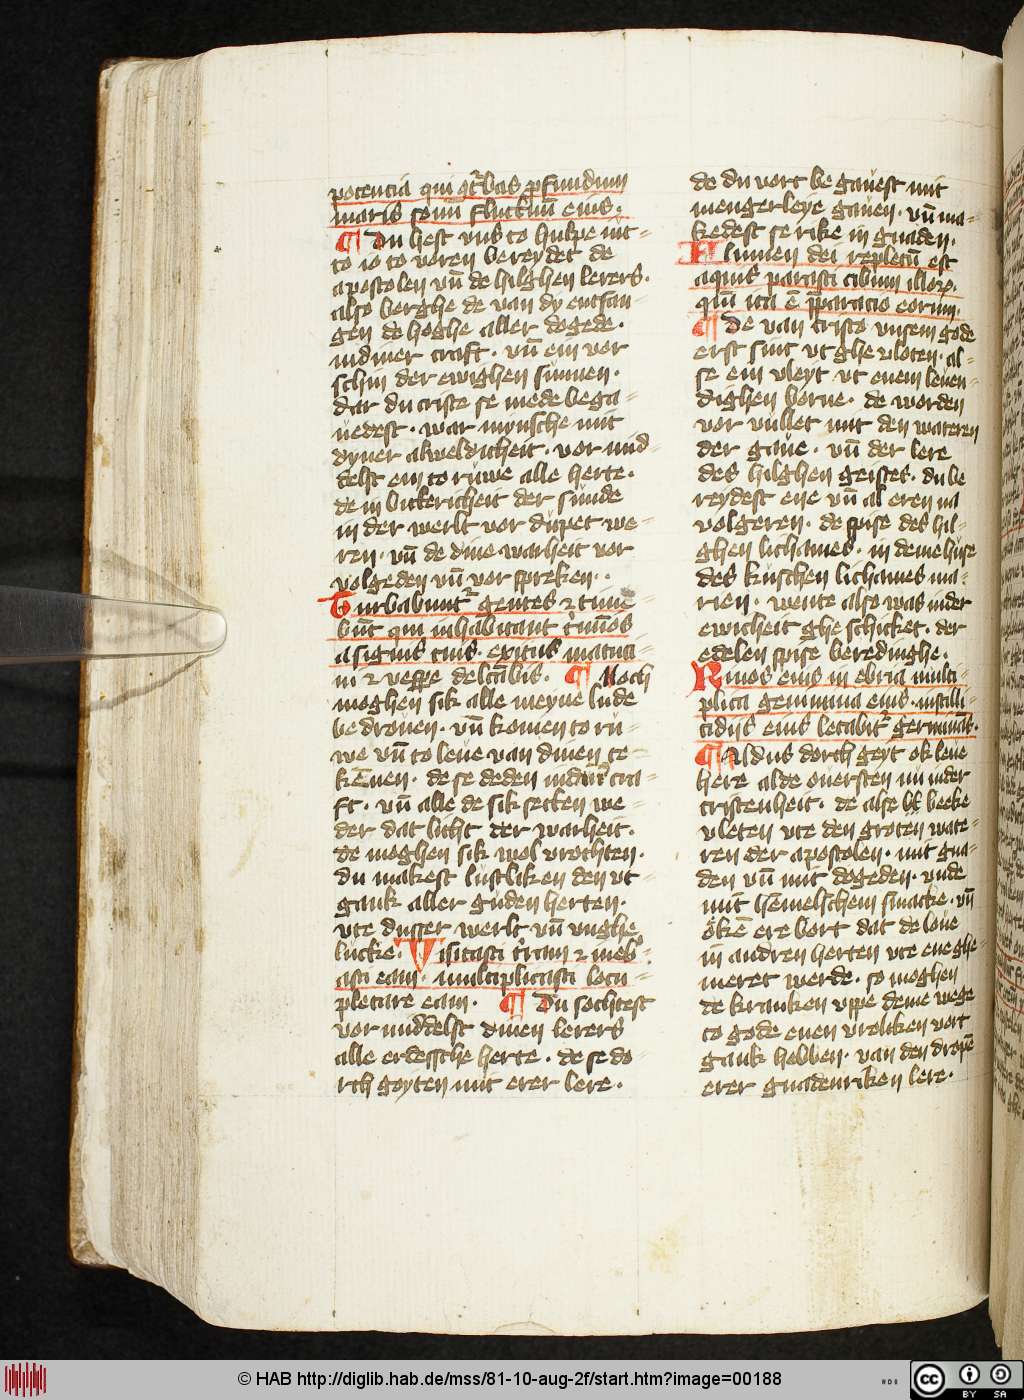 potencia qui ɔt͛bas ꝓfundum
maris sonū fluctuū eius.
¶ Du hest vns to hulpe nit
to io to voren bereydet de
apostolen vn̄ de hilghen lerers.
also berghe de van dy entfan-
gen de hoghe aller dogede.
in diner craft. vn̄ ein vor
schin der ewighen sunnen.
dar du criste se mede bega-
uedest. war mynsche mit
dyner alweldicheit. vor mid-
telst ein to ruwe alle herte.
de in bitkericheit der sunde
in der werlt vor dupet we-
ren. vn̄ de dine warheit vor
volgeden vn̄ vor spreken.
Turbabunt͛ gentes ⁊ time
būt qui inhabitant t͛minos
a signis tuis. exitus matuti-
ni ⁊ vesꝑe delc̄abis. ¶ Noch
moghen sik alle meyne lude
bedroven. vn̄ komen to ru-
we vn̄ to leue van dinen te-
kēnen. de se deden in diner cra-
ft. vn̄ alle de sik setten we-
der dat licht der warheit.
de moghen sik wol vrochten.
du makest lustliken den vt-
gank aller guden herten.
vte dusser werlt vn̄ vnghe
lucke. Visitasti t͛ram ⁊ inebⁱ-
asti eam. multiplicasti locu-
pletare eam. ¶ Du sochtest
vor middelst dinen lerers
alle erdessche herte. de se do-
rch goyten mit erer lere.
de du vort be gauest mit
mengerleye gauen. vn̄ ma-
kedest se rike in gnaden.
Flumen dei repletū est
aquis parasti cibum illoꝝ.
qm̄ ita ē p̄paratio eorum.
¶ De van cristo vnsem gode
erst sint vt ghe vloten. al-
se ein vleyt vt enem leuen-
dighen borne. de worden
vor vullet mit den wateren
der gaue. vn̄ der lere
des hilghen geistes. du be
reydest ene vn̄ al eren na
volgeren. de spise des hil-
ghen lichames. in deme huse
des kuschen lichames ma-
rien. wente also was in der
ewicheit ghe schicket. der
edelen spise beredinghe.
Riuos eius in ebria multi-
plica genimina eius. in stilli-
cidijs eius letabit͛ germinās.
¶ Aldus dorch geyt ok leue
here alde ouersten nu in der
cristenheit. de also beke
vleten vte den groten wate-
ren der apostolen. mit gna-
den vn̄ mit dogeden. vnde
mit hemelschem smacke. vn̄
okē ere bort dat de loue
in andren herten vte eneghe-
meret werde. so moghen
de kranken vppe deme wege
to gode enen vroliken vort
gank hebben. van den dropē
erer gnadenriken lere.
© HAB http://diglib.hab.de/mss/81-10-aug-2f/start.htm?image=00188
HAB
cc
BY SA